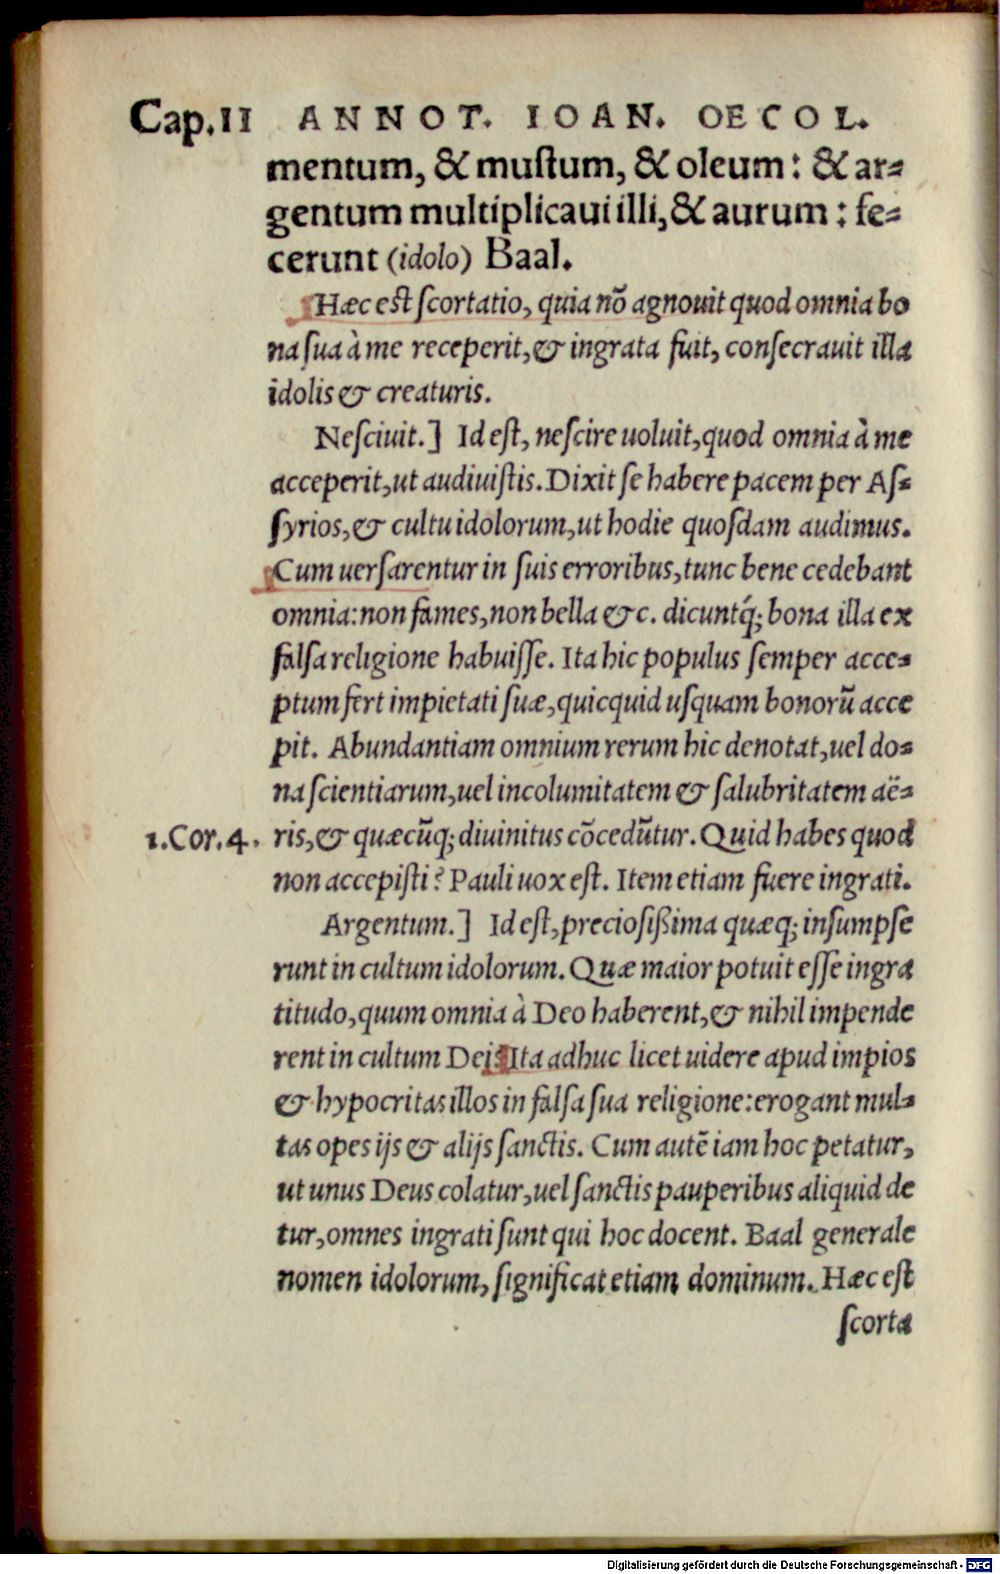 Cap.II ANNOT. IOAN. OECOL.
mentum, & muſtum, & oleum: & ar⸗
gentum multiplicaui illi, & aurum: fe⸗
cerunt (idolo) Baal.
Hæc eſt ſcortatio, quia nō agnouit quod omnia bo
na ſua à me receperit, & ingrata fuit, conſecrauit illa
idolis & creaturis.
Neſciuit.] Id eſt, neſcire uoluit, quod omnia à me
acceperit, ut audiuiſtis. Dixit ſe habere pacem per Aſ⸗
ſyrios, & cultu idolorum, ut hodie quoſdam audimus.
Cum uerſarentur in ſuis erroribus, tunc bene cedebant
omnia: non fames, non bella &c. dicuntq́; bona illa ex
falſa religione habuiſſe. Ita hic populus ſemper acce⸗
ptum fert impietati ſuæ, quicquid uſquam bonorū acce
pit. Abundantiam omnium rerum hic denotat, uel do⸗
na ſcientiarum, uel incolumitatem & ſalubritatem aë⸗
1.Cor.4. ris, & quæcūq; diuinitus cōcedūtur. Quid habes quod
non accepiſti? Pauli uox eſt. Item etiam fuere ingrati.
Argentum.] Id eſt, precioſißima quæq; inſumpſe
runt in cultum idolorum. Quæ maior potuit eſſe ingra
titudo, quum omnia à Deo haberent, & nihil impende
rent in cultum Dei? Ita adhuc licet uidere apud impios
& hypocritas illos in falſa ſua religione: erogant mul⸗
tas opes ijs & alijs ſanctis. Cum autē iam hoc petatur,
ut unus Deus colatur, uel ſanctis pauperibus aliquid de
tur, omnes ingrati ſunt qui hoc docent. Baal generale
nomen idolorum, ſignificat etiam dominum. Hæc eſt
ſcorta
Digitalisierung gefördert durch die Deutsche Forschungsgemeinschaft - DFG